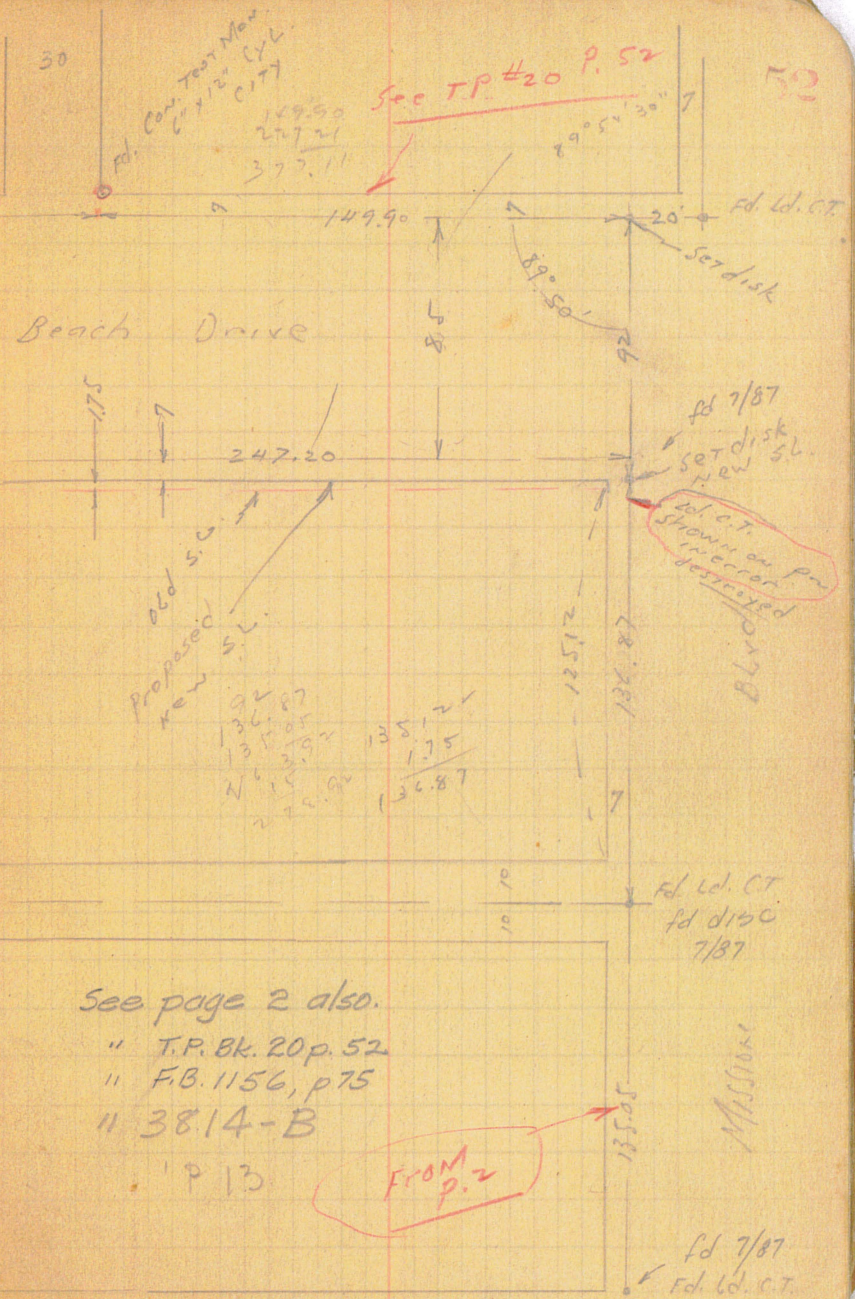 30
Fd. Con. Test Mon.
6" x 12" Cyl.
CITY
149.90
227.21
377.11
See T.P. #20 P. 52
52
89° 54' 30"
7
7
149.90
7
20'
Fd. Ld. C.T.
Set disk
89° 50'
85
92
Beach Drive
1.75
7
247.20
fd 7/87
Set disk
New S.L.
Ld. C.T.
Shown on
in error
destroyed
Old S.L.
Proposed
New S.L.
125.12
136.87
Blvd
92
136.87
135.05
135.12
1.75
136.87
7
10 10
Fd. Ld. C.T.
fd disc
7/87
See page 2 also.
" T.P. Bk. 20 p. 52
" F.B. 1156, p 75
" 3814-B
' P 13
From
p. 2
135.05
Mission
fd 7/87
Fd. Ld. C.T.